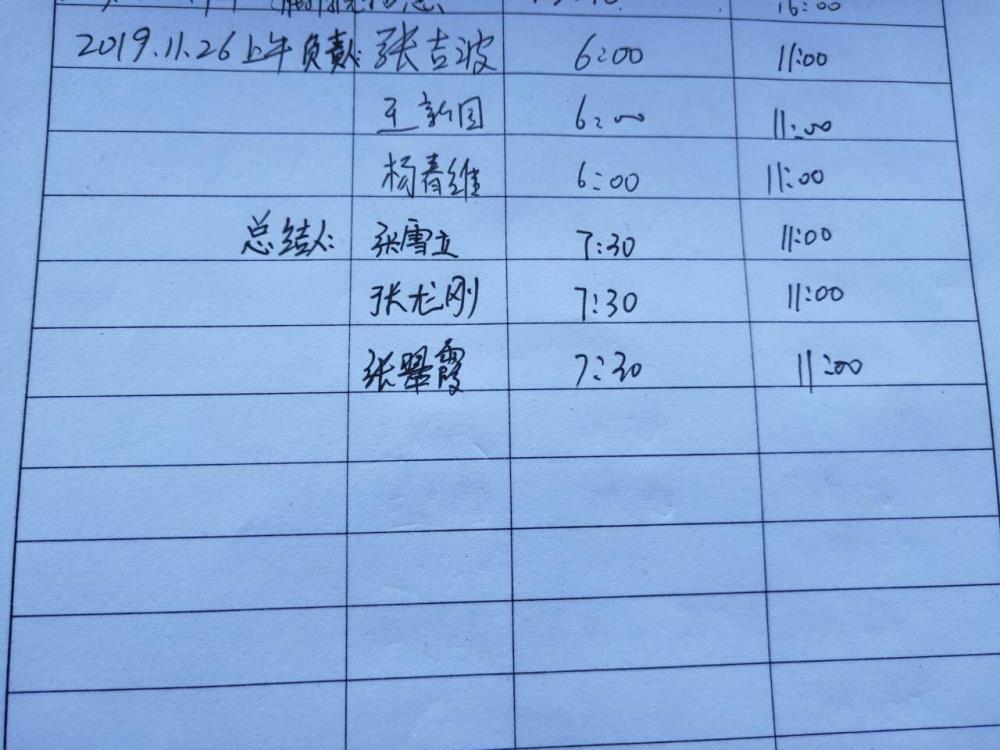 16:00
2019.11.26上午 负责人: 张吉波 6:00 11:00
王新国 6:00 11:00
杨春维 6:00 11:00
总结人: 张雪立 7:30 11:00
张龙刚 7:30 11:00
张翠霞 7:30 11:00